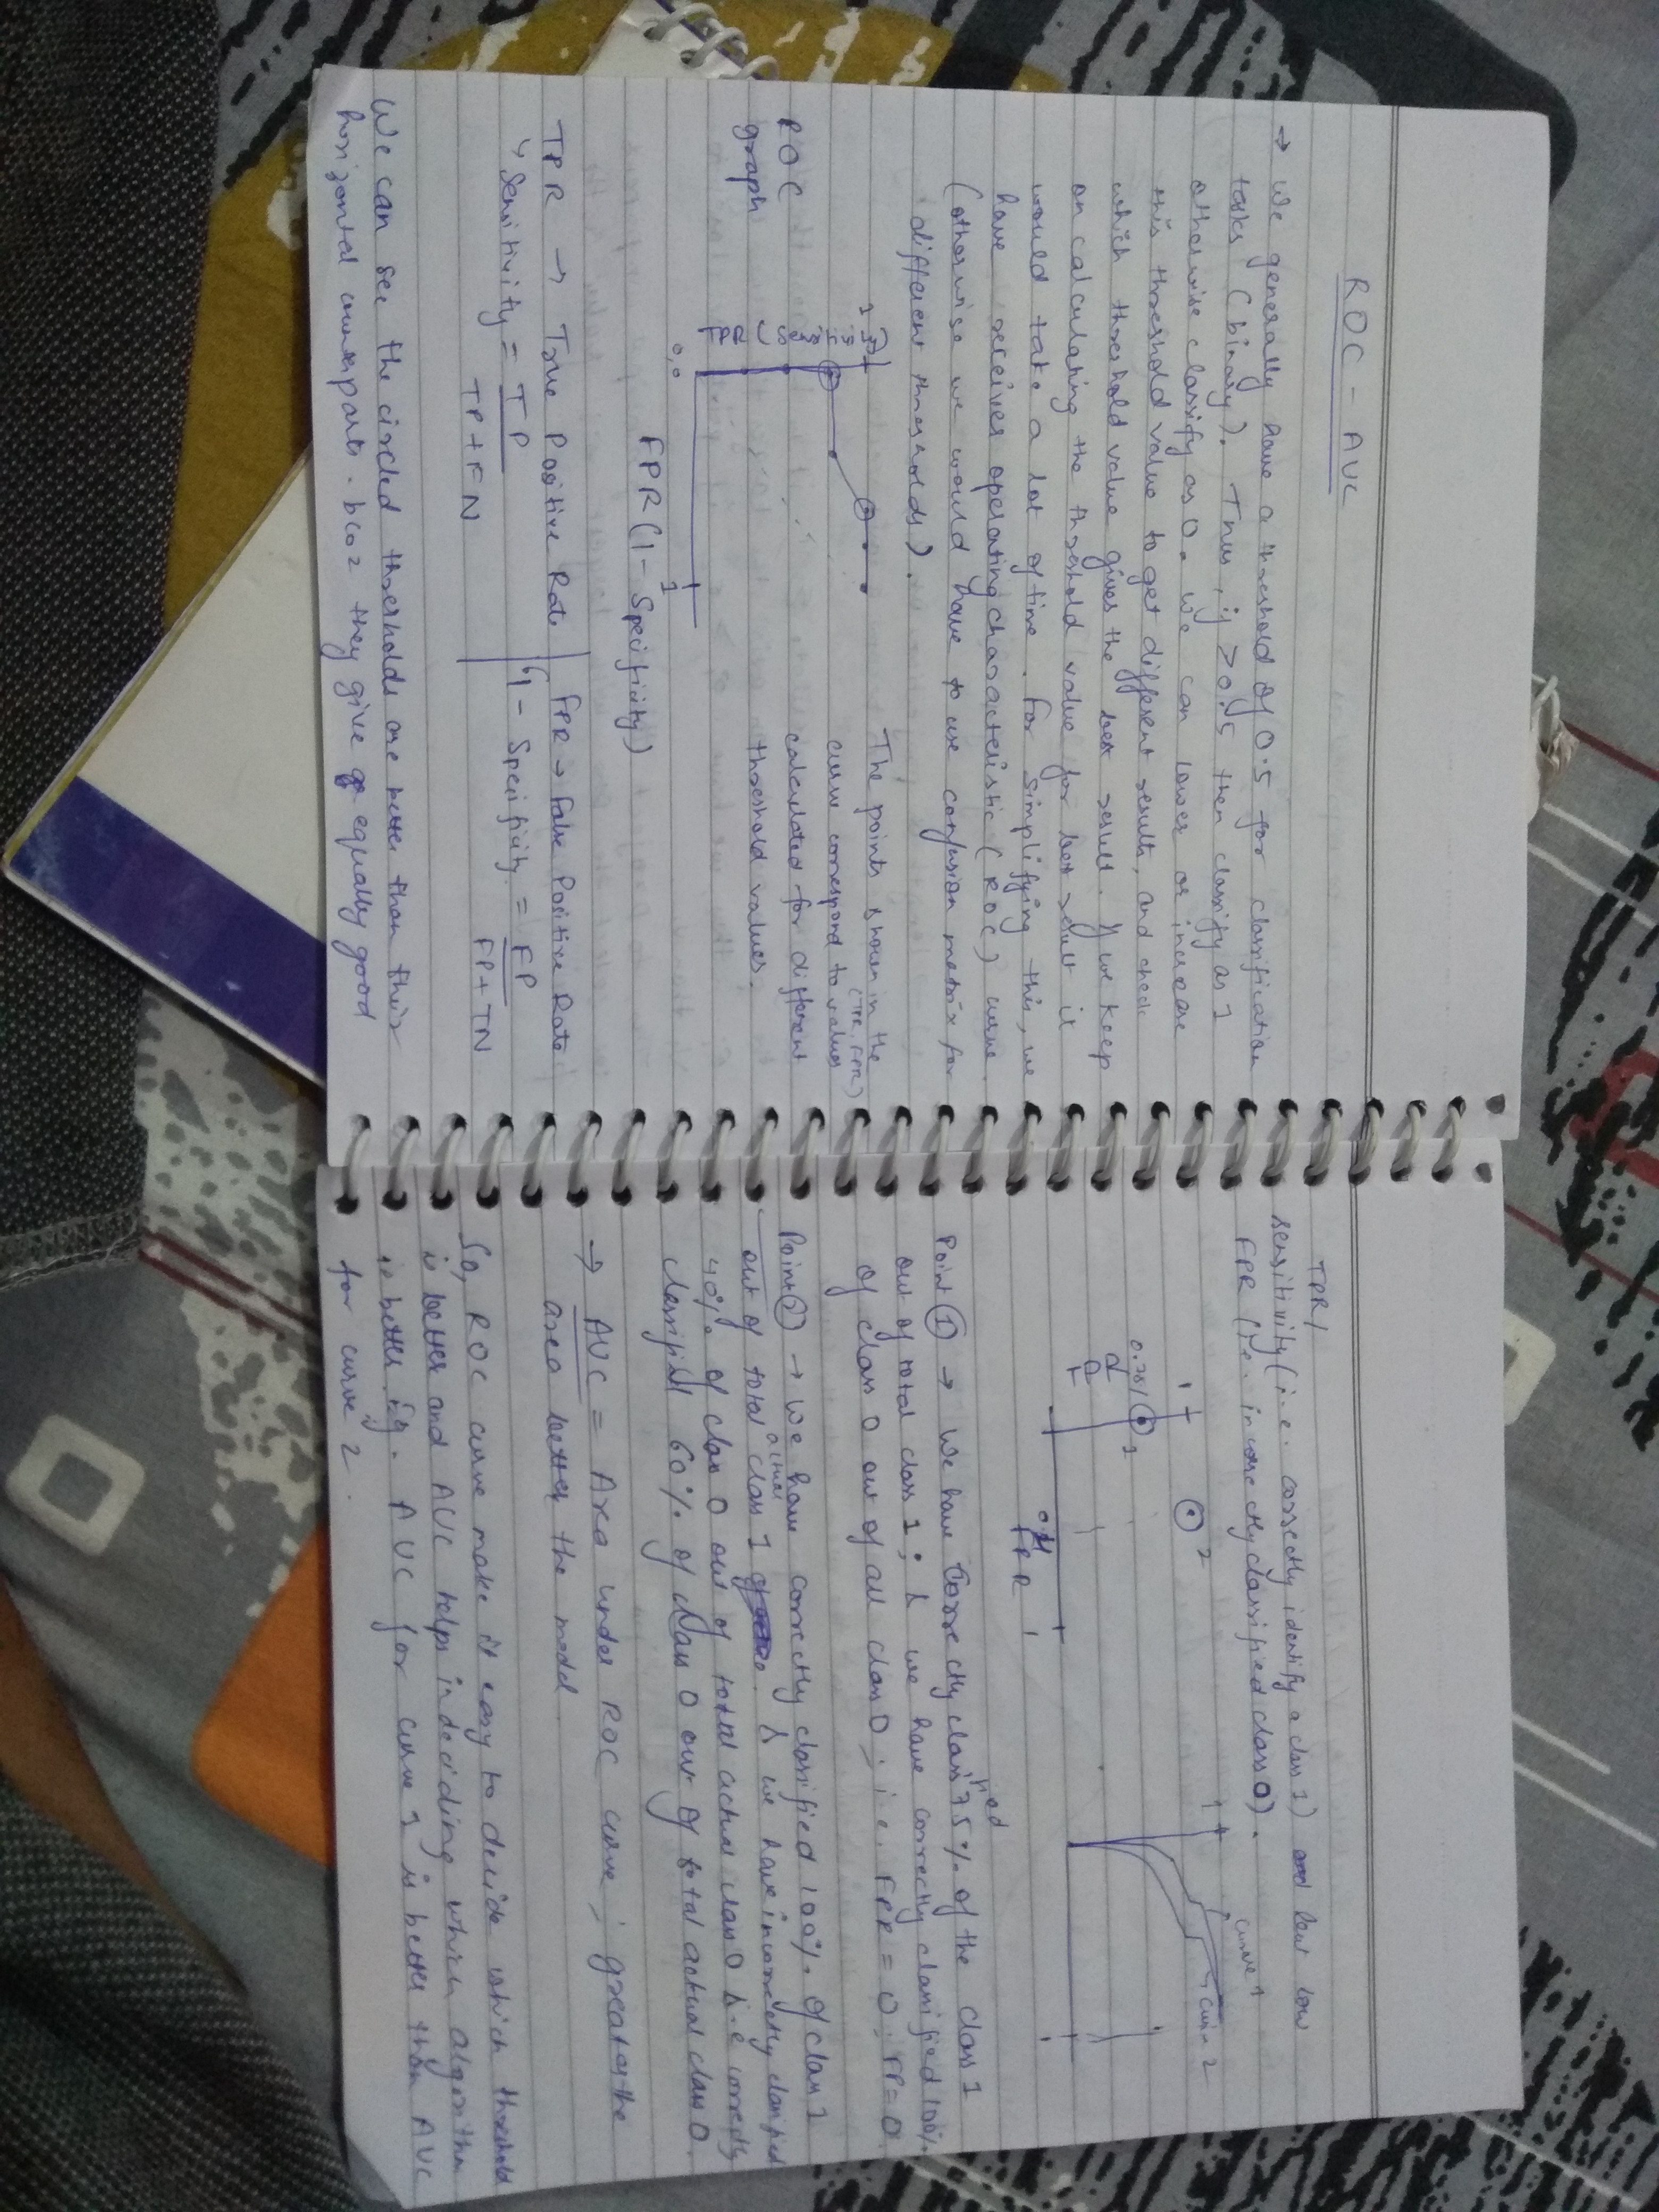 ROC - AUC
→ We generally have a threshold of 0.5 for classification
tasks (binary). Thus, if > 0.5 then classify as 1
otherwise classify as 0. We can lower or increase
this threshold value to get different results, and check
which threshold value gives the best result. If we keep
on calculating the threshold value for best result it
would take a lot of time. For simplifying this, we
have receiver operating characteristic (ROC) curve.
(otherwise we would have to use confusion matrix for
different thresholds).
ROC
graph
1
0,0
1
FPR (1 - Specificity)
The points shown in the
curve correspond to values (TPR, FPR)
calculated for different
threshold values.
TPR → True Positive Rate
↳ Sensitivity = TP
TP + FN
FPR → False Positive Rate
↳ 1 - Specificity = FP
FP + TN
We can see the circled thresholds are better than their
horizontal counterparts. bcoz they give equally good
TPR/
sensitivity (i.e. correctly identify a class 1) and but low
FPR (i.e. incorrectly classified class 0).
1
0.75
1
2
0.4
FPR
1
1
curve 1
curve 2
Point ① → We have correctly classified 75% of the class 1
out of total class 1; & we have correctly classified 100%
of class 0 out of all class 0; i.e. FPR = 0; FP = 0
Point ② → We have correctly classified 100% of class 1
out of total actual class 1. & we have incorrectly classified
40% of class 0 out of total actual class 0 i.e correctly
classified 60% of class 0 out of total actual class 0.
→ AUC = Area under ROC curve; greater the
area better the model.
So, ROC curve make it easy to decide which threshold
is better and AUC helps in deciding which algorithm
is better. Eg. AUC for curve 1 is better than AUC
for curve 2.